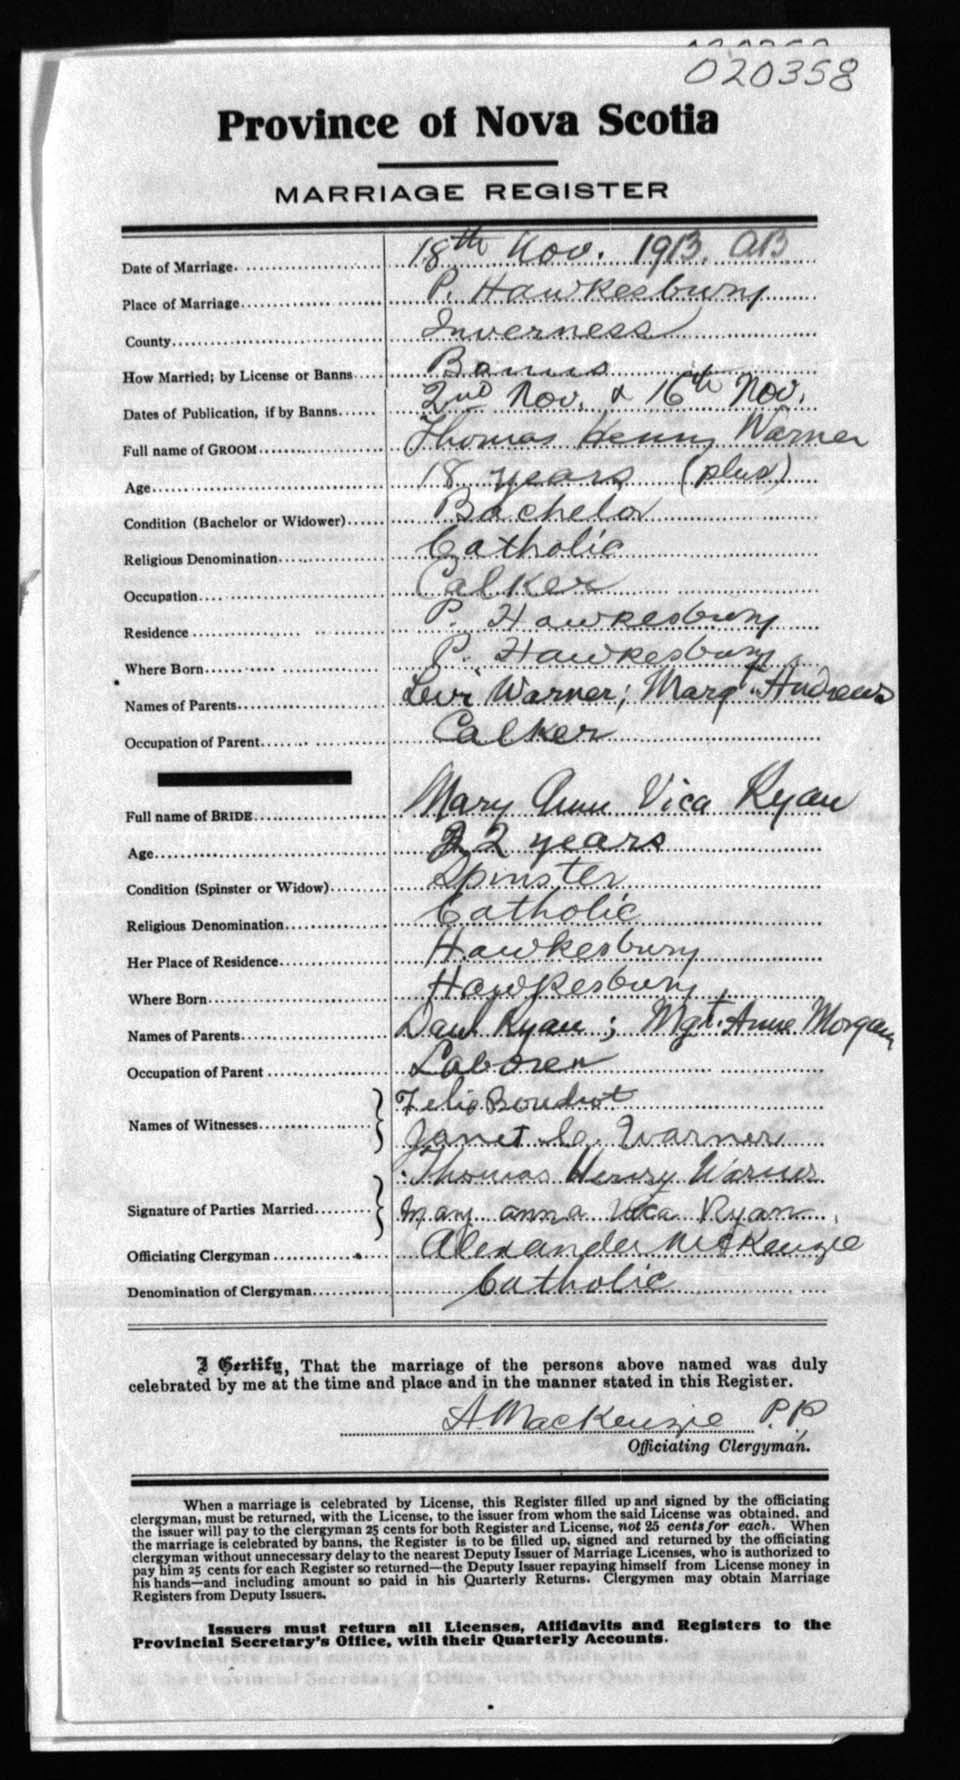 020358
Province of Nova Scotia
MARRIAGE REGISTER
Date of Marriage. 18th Nov. 1913. AB
Place of Marriage P. Hawkesbury
County Inverness
How Married; by License or Banns Banns
Dates of Publication, if by Banns 2nd Nov. & 16th Nov.
Full name of GROOM Thomas Henry Warner
Age 18 years (plus)
Condition (Bachelor or Widower) Bachelor
Religious Denomination Catholic
Occupation Calker
Residence P. Hawkesbury
Where Born P. Hawkesbury
Names of Parents Levi Warner; Margt. Andrews
Occupation of Parent Calker
Full name of BRIDE Mary Ann Vica Ryan
Age 22 years
Condition (Spinster or Widow) Spinster
Religious Denomination Catholic
Her Place of Residence Hawkesbury
Where Born Hawkesbury
Names of Parents Danl Ryan; Mgt. Anne Morgan
Occupation of Parent Laborer
Names of Witnesses Felix Boudrot
Janet C. Warner
Signature of Parties Married Thomas Henry Warner
Mary anna Vica Ryan
Officiating Clergyman Alexander McKenzie
Denomination of Clergyman Catholic
I Certify, That the marriage of the persons above named was duly
celebrated by me at the time and place and in the manner stated in this Register.
A. MacKenzie P.P.
Officiating Clergyman.
When a marriage is celebrated by License, this Register filled up and signed by the officiating
clergyman, must be returned, with the License, to the issuer from whom the said License was obtained, and
the issuer will pay to the clergyman 25 cents for both Register and License, not 25 cents for each. When
the marriage is celebrated by banns, the Register is to be filled up, signed and returned by the officiating
clergyman without unnecessary delay to the nearest Deputy Issuer of Marriage Licenses, who is authorized to
pay him 25 cents for each Register so returned—the Deputy Issuer repaying himself from License money in
his hands—and including amount so paid in his Quarterly Returns. Clergymen may obtain Marriage
Registers from Deputy Issuers.
Issuers must return all Licenses, Affidavits and Registers to the
Provincial Secretary's Office, with their Quarterly Accounts.